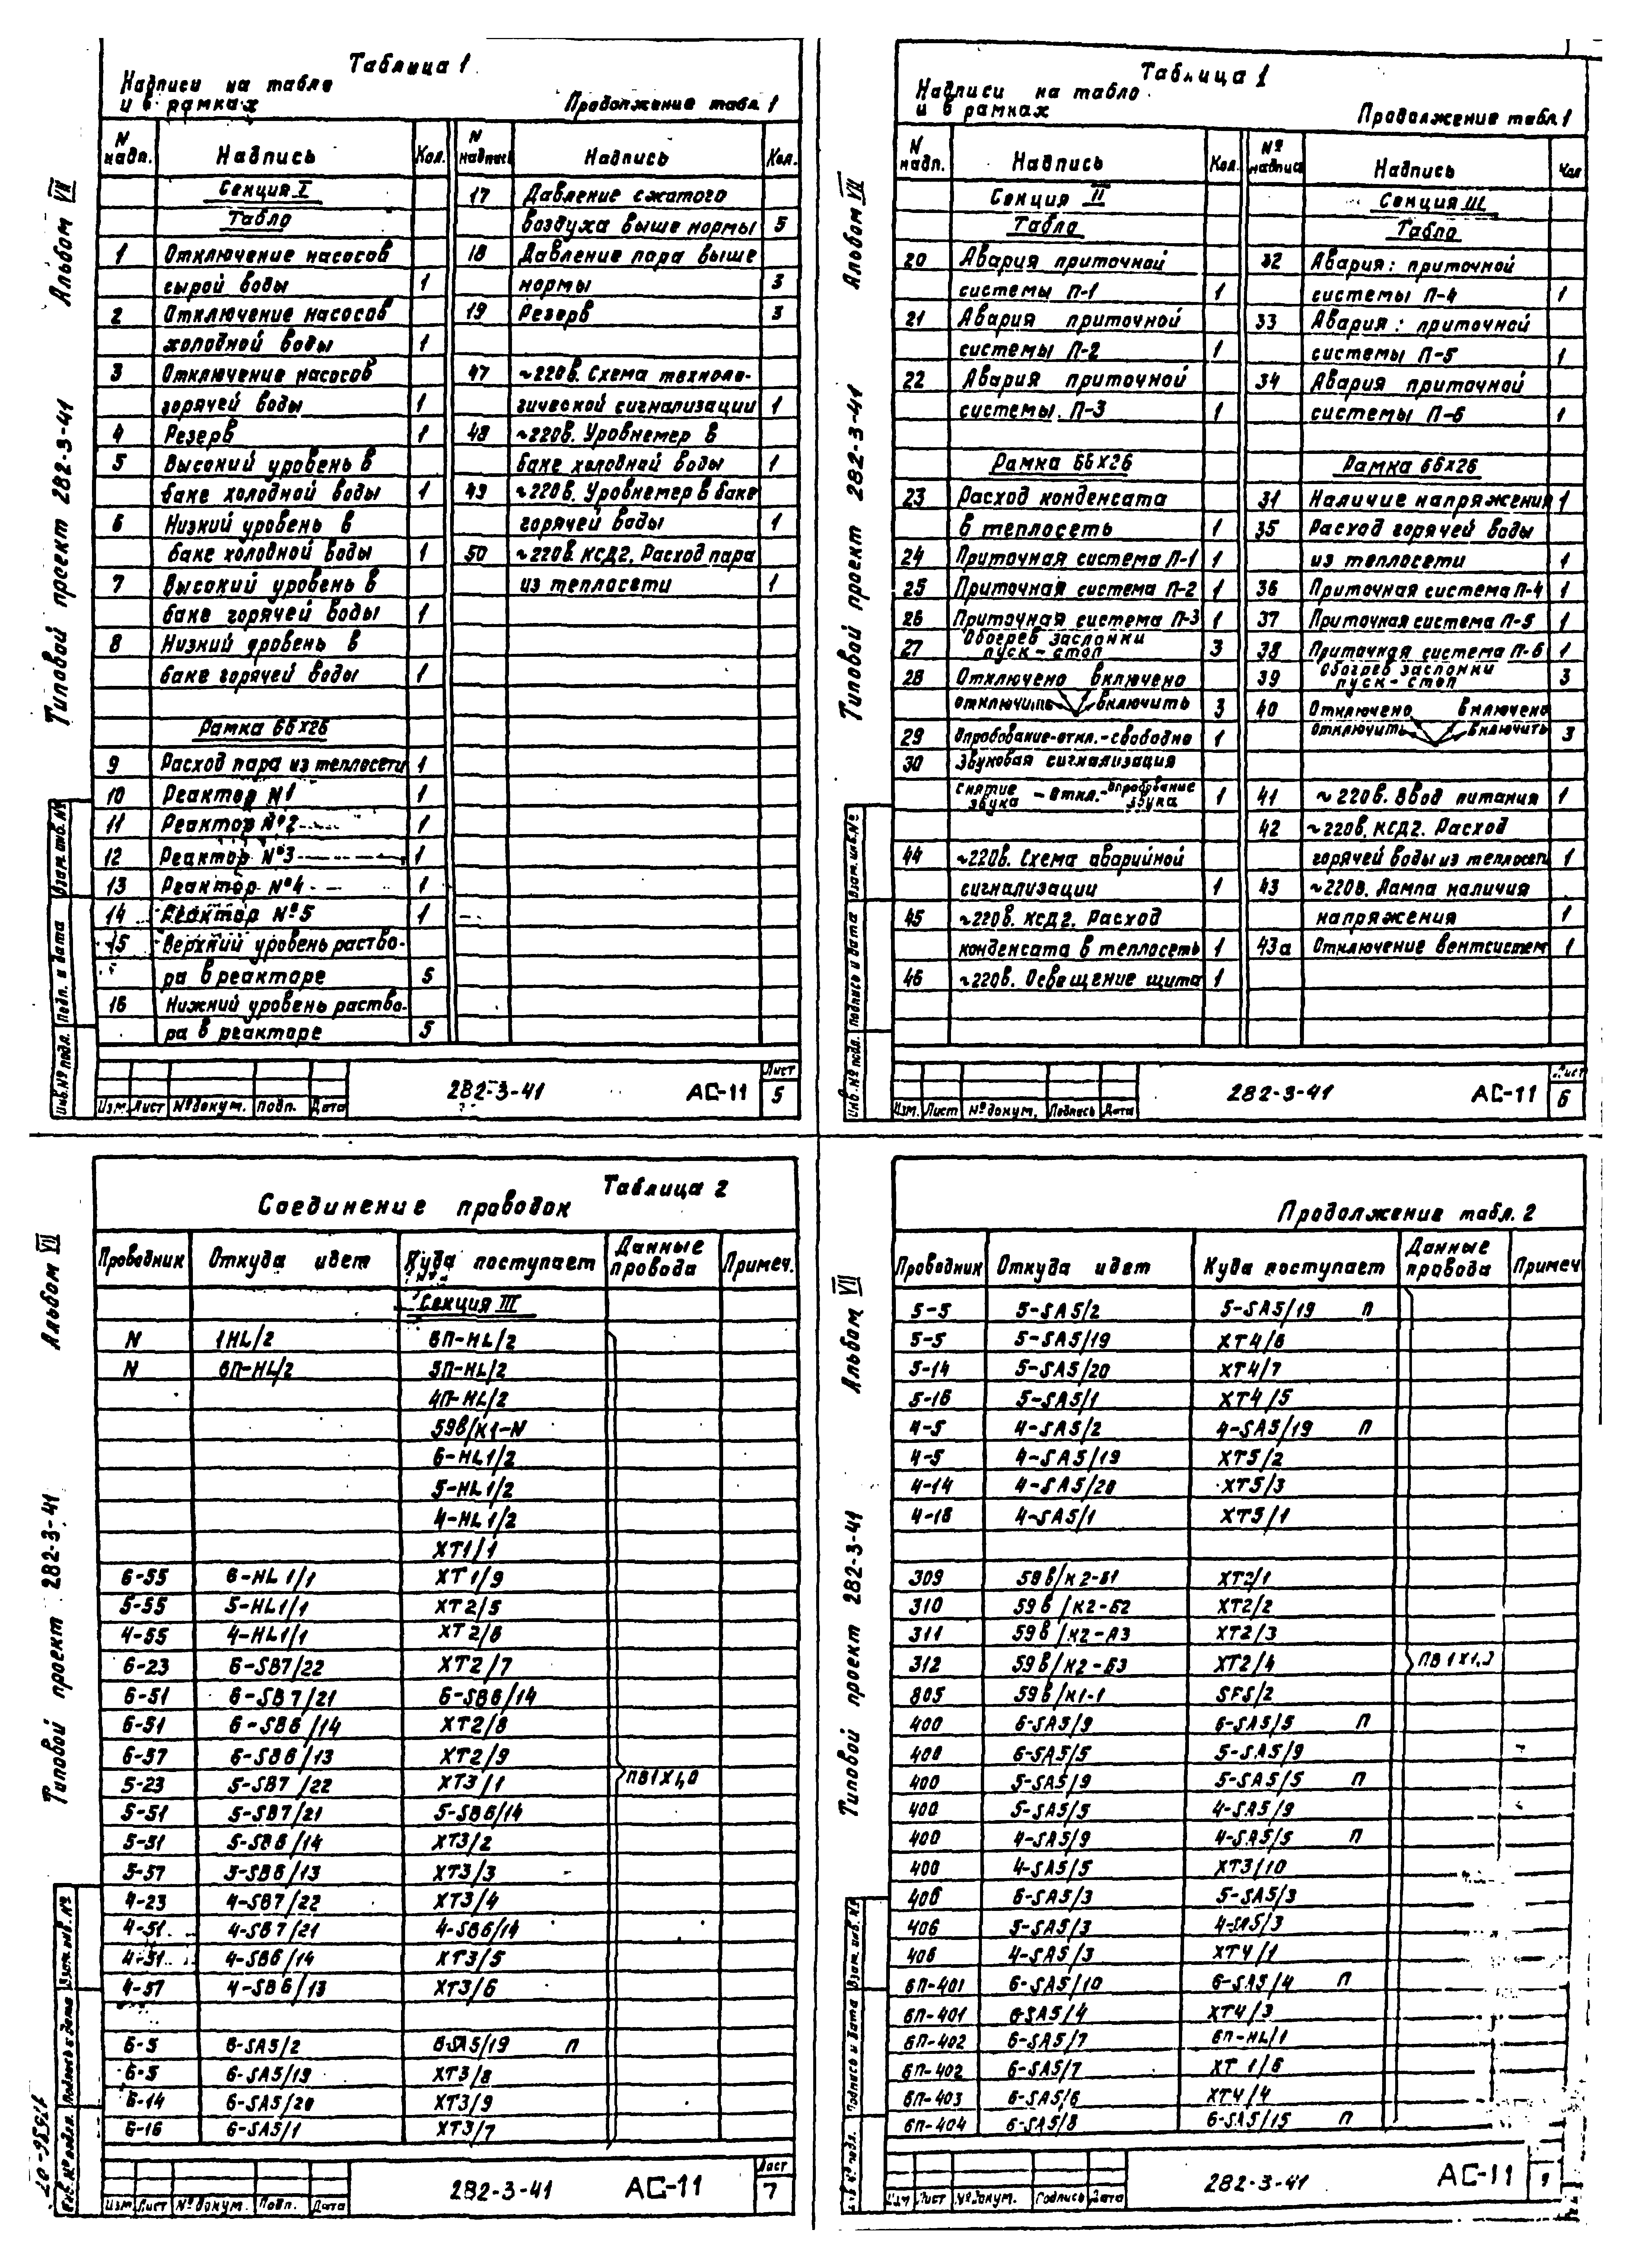 Таблица 1
Надписи на табло
и в рамках
Продолжение табл 1
N надп. Надпись Кол. N надпись Надпись Кол.
Секция I 17 Давление сжатого
Табло воздуха выше нормы 5
1 Отключение насосов 18 Давление пара выше
сырой воды 1 нормы 3
2 Отключение насосов 19 Резерв 3
холодной воды 1
3 Отключение насосов 47 ~220в. Схема техноло-
горячей воды 1 гической сигнализации 1
4 Резерв 1 48 ~220в. Уровнемер в
5 Высокий уровень в баке холодной воды 1
баке холодной воды 1 49 ~220в. Уровнемер в баке
6 Низкий уровень в горячей воды 1
баке холодной воды 1 50 ~220в. КСД2. Расход пара
7 Высокий уровень в из теплосети 1
баке горячей воды 1
8 Низкий уровень в
баке горячей воды 1
Рамка 66х26
9 Расход пара из теплосети 1
10 Реактор N1 1
11 Реактор №2 1
12 Реактор №3 1
13 Реактор №4 1
14 Реактор №5 1
15 Верхний уровень раство-
ра в реакторе 5
16 Нижний уровень раство-
ра в реакторе 5
Изм. Лист № докум. Подп. Дата
282-3-41 АС-11 Лист 5
Типовой проект 282-3-41 Альбом VII
Инв. № подл. Подп. и дата Взам. инв. №
Таблица 1
Надписи на табло
и в рамках
Продолжение табл 1
N надп. Надпись Кол. № надписи Надпись Кол
Секция II Секция III
Табло Табло
20 Авария приточной 32 Авария: приточной
системы П-1 1 системы П-4 1
21 Авария приточной 33 Авария: приточной
системы П-2 1 системы П-5 1
22 Авария приточной 34 Авария приточной
системы. П-3 1 системы П-6 1
Рамка 66х26 Рамка 66х26
23 Расход конденсата 31 Наличие напряжения 1
в теплосеть 1 35 Расход горячей воды
24 Приточная система П-1 1 из теплосети 1
25 Приточная система П-2 1 36 Приточная система П-4 1
26 Приточная система П-3 1 37 Приточная система П-5 1
27 Обогрев заслонки пуск-стоп 3 38 Приточная система П-6 1
28 Отключено включено 39 Обогрев заслонки пуск-стоп 3
отключить включить 3 40 Отключено Включено
29 Опробование-откл.-свободно 1 Отключить Включить 3
30 Звуковая сигнализация
снятие звука - откл. - опробование звука 1 41 ~220в. Ввод питания 1
42 ~220в. КСД2. Расход
44 ~220в. Схема аварийной горячей воды из теплосети 1
сигнализации 1 43 ~220в. Лампа наличия
45 ~220в. КСД2. Расход напряжения 1
конденсата в теплосеть 1 43а Отключение вентсистем 1
46 ~220в. Освещение щита 1
Изм. Лист № докум. Подпись Дата
282-3-41 АС-11 Лист 6
Типовой проект 282-3-41 Альбом VII
Инв. № подл. Подпись и дата Взам. инв. №
Таблица 2
Соединение проводок
Проводник Откуда идет Куда поступает Данные провода Примеч.
Секция III
N 1HL/2 6П-HL/2
N 6П-HL/2 5П-HL/2
4П-HL/2
59в/К1-N
6-HL1/2
5-HL1/2
4-HL1/2
XT1/1
6-55 6-HL1/1 XT1/9
5-55 5-HL1/1 XT2/5
4-55 4-HL1/1 XT2/6
6-23 6-SB7/22 XT2/7
6-51 6-SB7/21 6-SB6/14
6-51 6-SB6/14 XT2/8
6-57 6-SB6/13 XT2/9
5-23 5-SB7/22 XT3/1 ПВ1х1,0
5-51 5-SB7/21 5-SB6/14
5-51 5-SB6/14 XT3/2
5-57 5-SB6/13 XT3/3
4-23 4-SB7/22 XT3/4
4-51 4-SB7/21 4-SB6/14
4-51 4-SB6/14 XT3/5
4-57 4-SB6/13 XT3/6
6-5 6-SA5/2 6-SA5/19 П
6-5 6-SA5/19 XT3/8
6-14 6-SA5/20 XT3/9
6-16 6-SA5/1 XT3/7
Изм Лист № докум. Подп. Дата
282-3-41 АС-11 Лист 7
Типовой проект 282-3-41 Альбом VII
Инв. № подл. Подпись и дата Взам. инв. №
Продолжение табл. 2
Проводник Откуда идет Куда поступает Данные провода Примеч
5-5 5-SA5/2 5-SA5/19 П
5-5 5-SA5/19 XT4/6
5-14 5-SA5/20 XT4/7
5-16 5-SA5/1 XT4/5
4-5 4-SA5/2 4-SA5/19 П
4-5 4-SA5/19 XT5/2
4-14 4-SA5/20 XT5/3
4-16 4-SA5/1 XT5/1
309 59в/К2-Б1 XT2/1
310 59в/К2-Б2 XT2/2
311 59в/К2-А3 XT2/3
312 59в/К2-Б3 XT2/4 ПВ1х1,0
805 59в/К1-1 SF5/2
400 6-SA5/9 6-SA5/5 П
400 6-SA5/5 5-SA5/9
400 5-SA5/9 5-SA5/5 П
400 5-SA5/5 4-SA5/9
400 4-SA5/9 4-SA5/5 П
400 4-SA5/5 XT3/10
406 6-SA5/3 5-SA5/3
406 5-SA5/3 4-SA5/3
406 4-SA5/3 XT4/1
6П-401 6-SA5/10 6-SA5/4 П
6П-401 6-SA5/4 XT4/3
6П-402 6-SA5/7 6П-HL/1
6П-402 6-SA5/7 XT1/6
6П-403 6-SA5/6 XT4/4
6П-404 6-SA5/8 6-SA5/15 П
Изм Лист № докум. Подпись Дата
282-3-41 АС-11
Типовой проект 282-3-41 Альбом VII
Подпись и дата Взам. инв. №